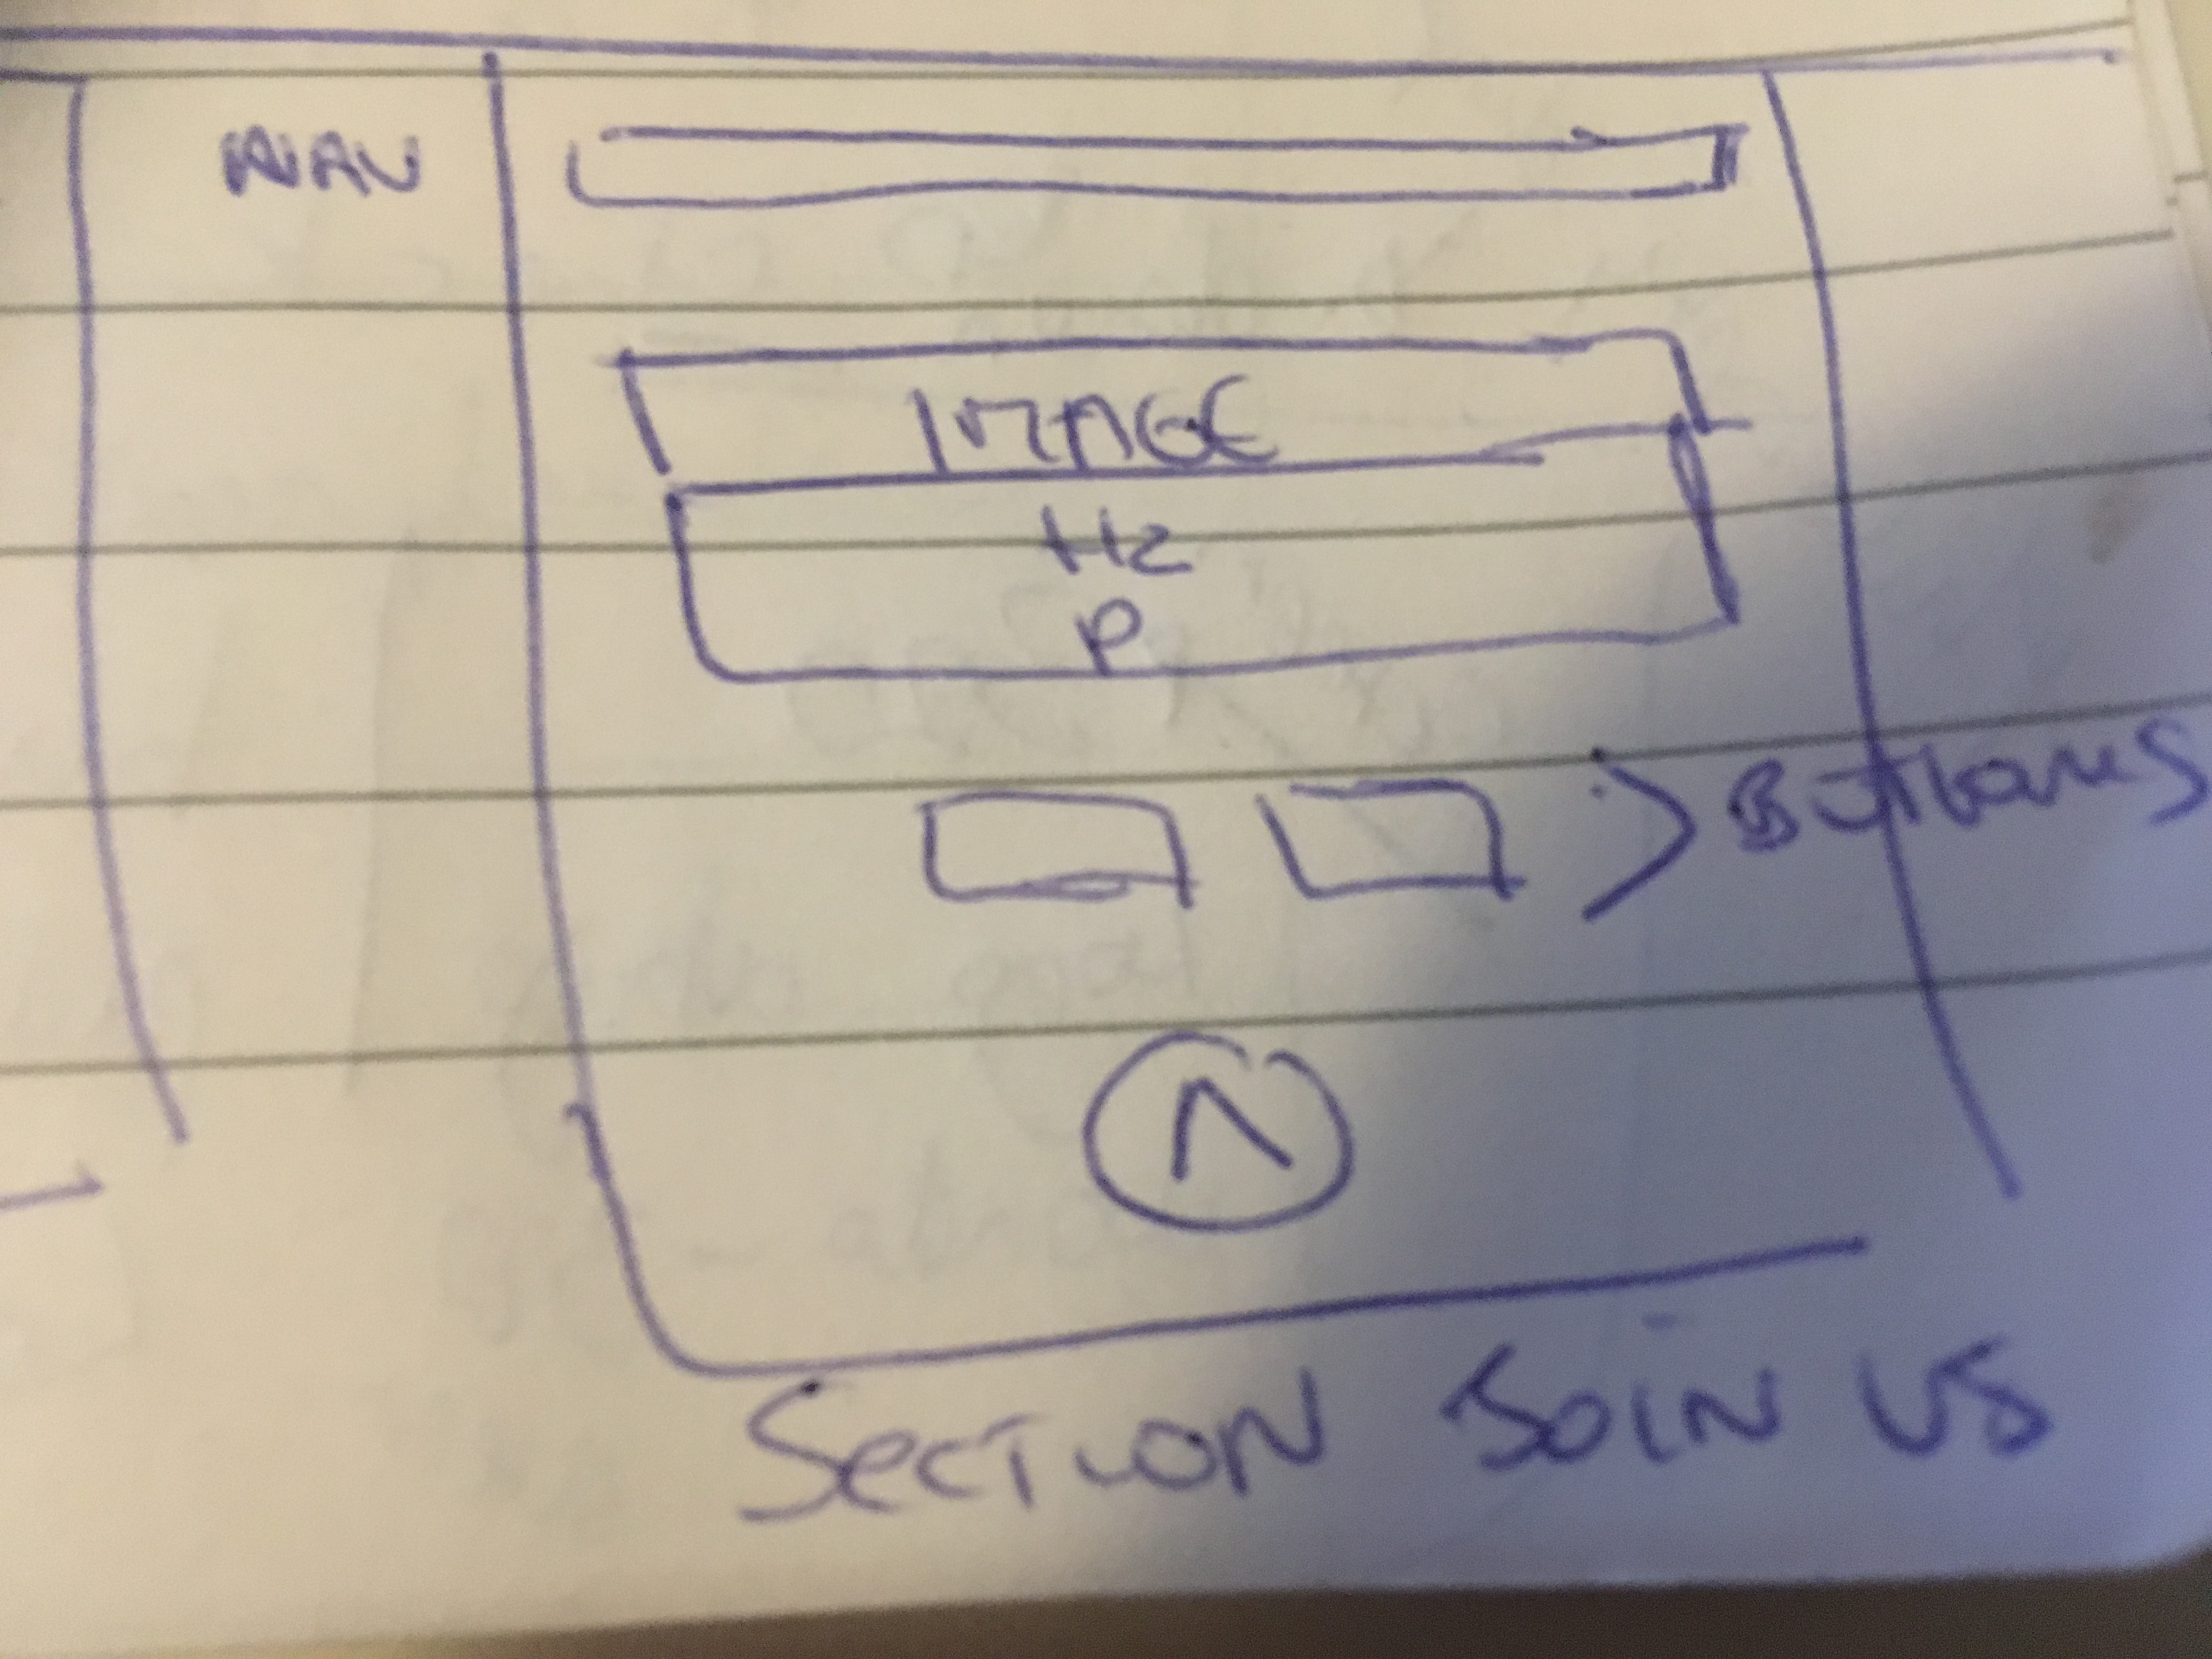 NAV
IMAGE
H2
P
Buttons
SECTION JOIN US